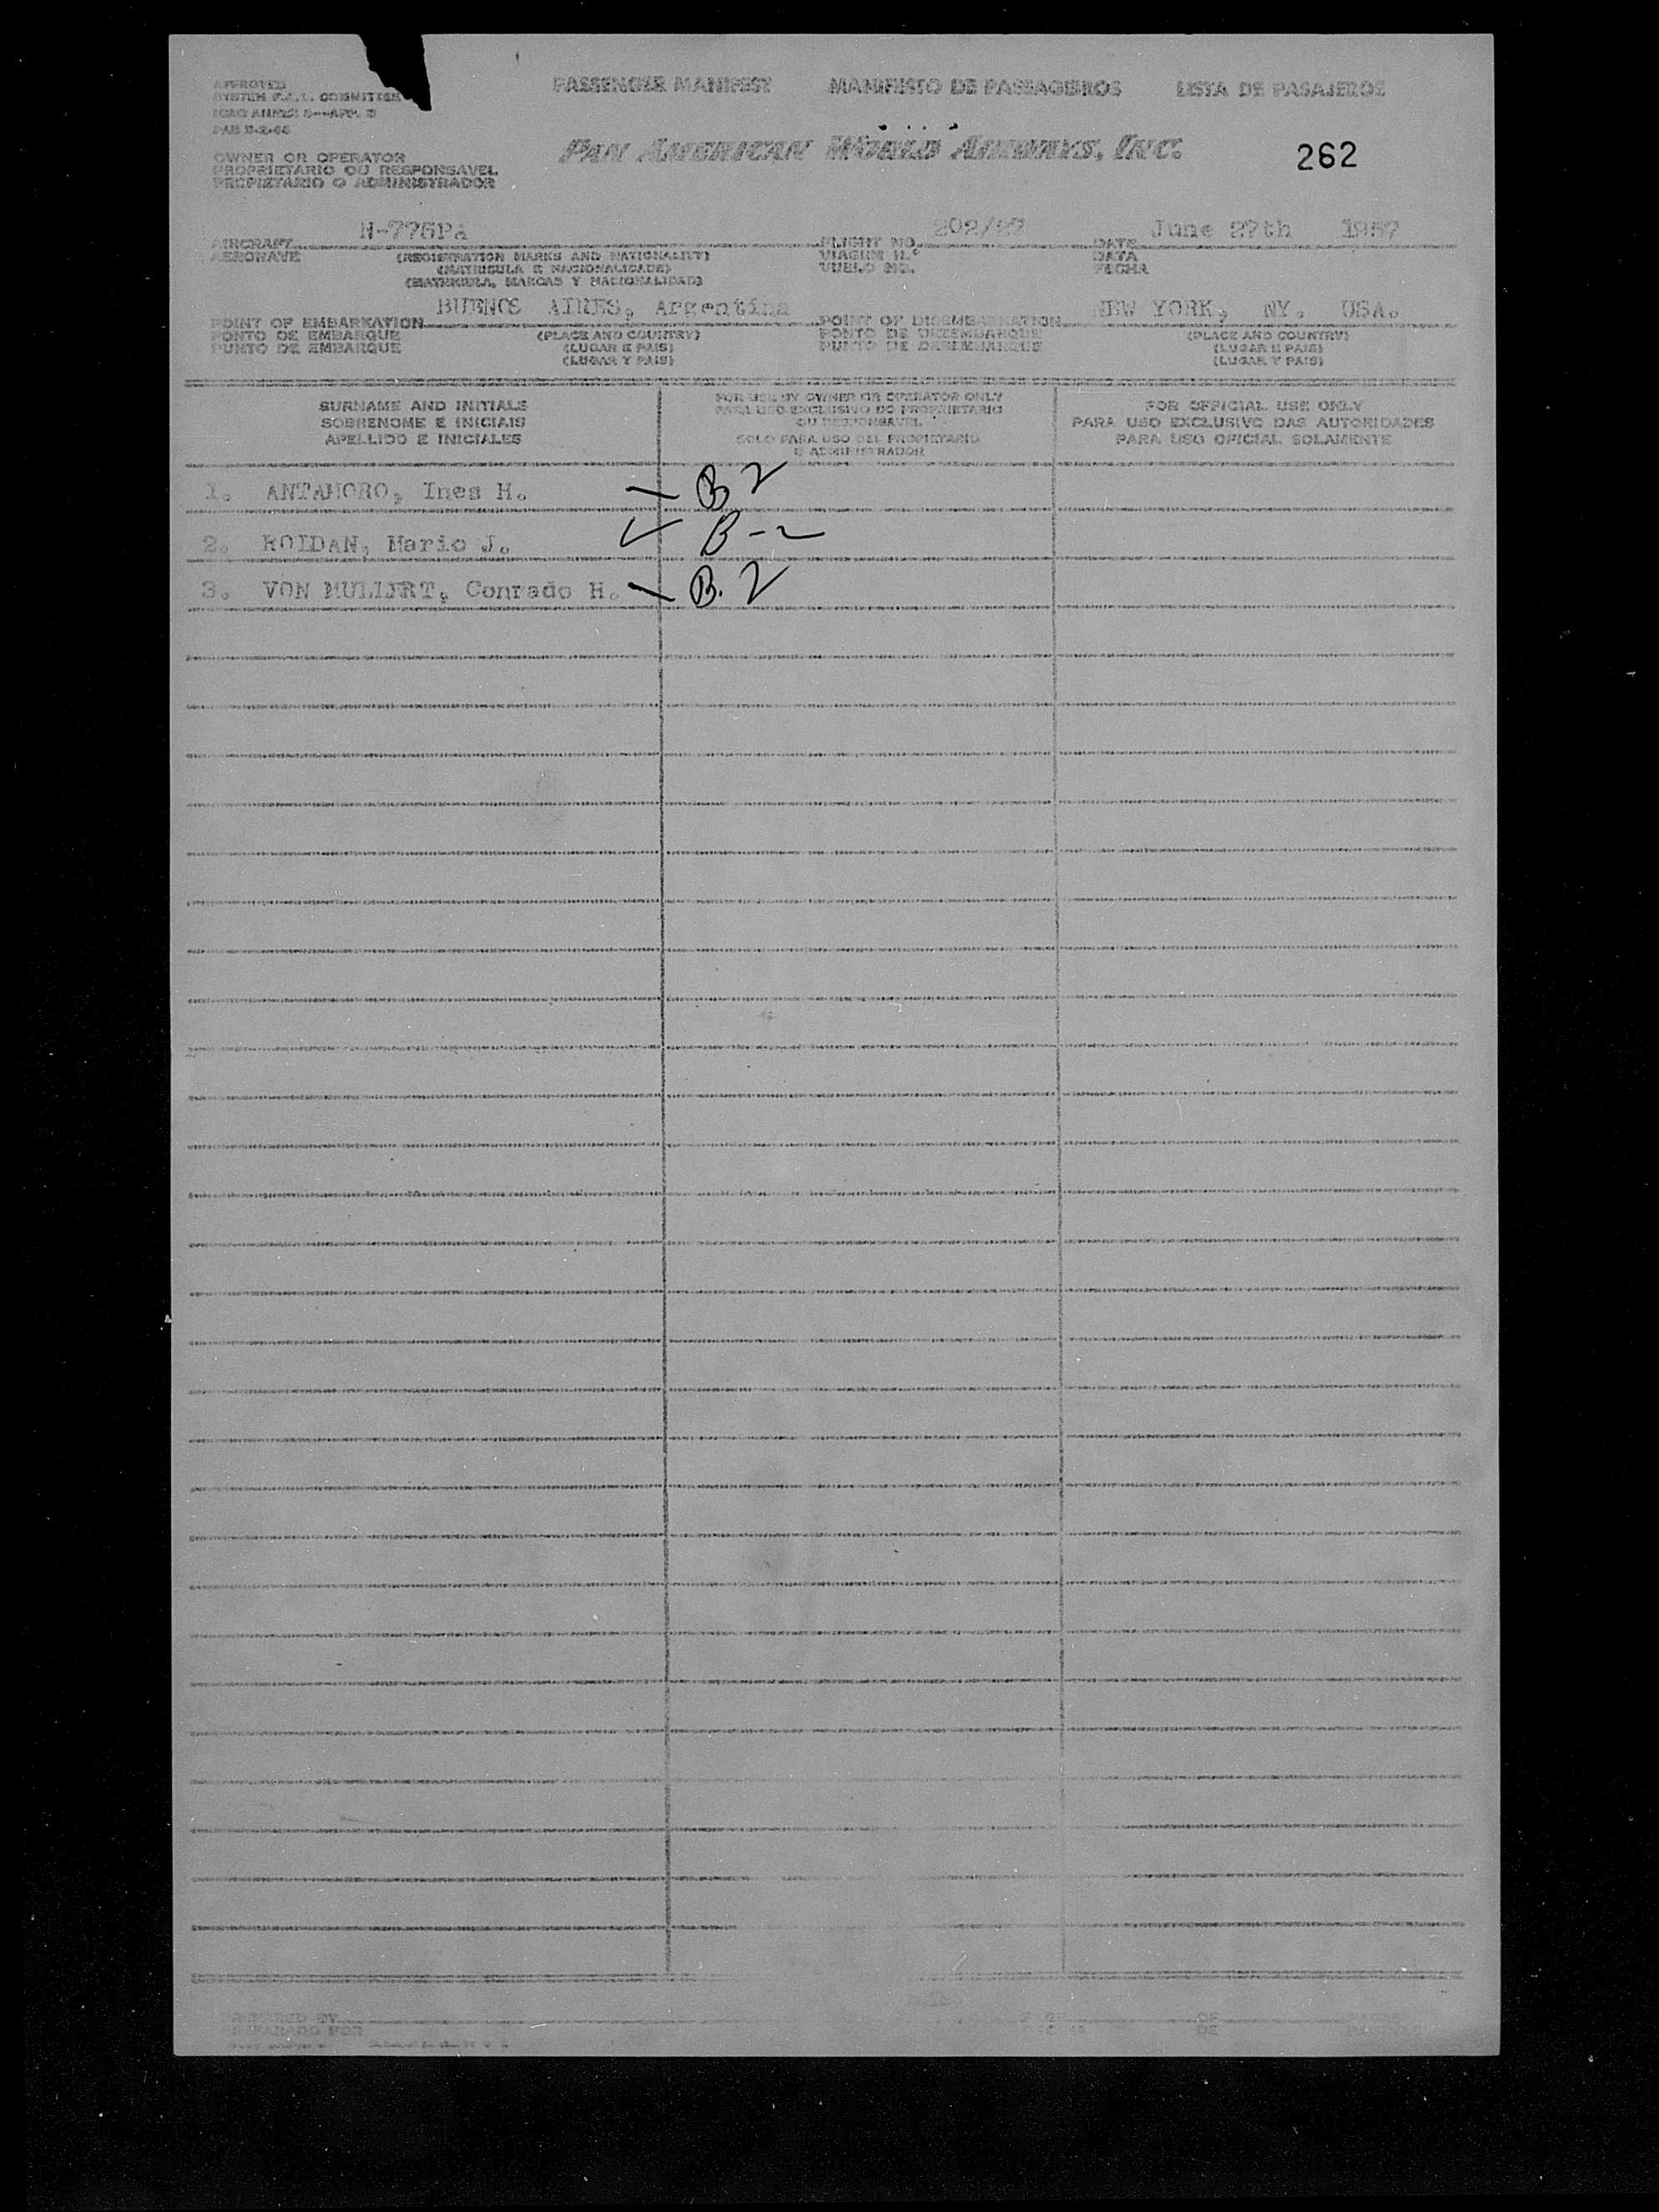 APPROVED PASSENGER MANIFEST MANIFESTO DE PASSAGEIROS LISTA DE PASAJEROS
SYSTEM F.A.L. COMMITTEE
ICAO ANNEX 9—APP. 3
PAN AMERICAN WORLD AIRWAYS, INC. 262
OWNER OR OPERATOR
PROPRIETARIO OU RESPONSAVEL
PROPIETARIO O ADMINISTRADOR
AIRCRAFT N-775PA FLIGHT NO. 202/27 DATE June 27th 1957
AERONAVE (REGISTRATION MARKS AND NATIONALITY) VIAGEM N.º DATA
(MATRICULA E NACIONALIDADE) VUELO NO. FECHA
(MATRICULA, MARCAS Y NACIONALIDAD)
POINT OF EMBARKATION BUENOS AIRES, Argentina POINT OF DISEMBARKATION NEW YORK, NY. USA.
PONTO DE EMBARQUE (PLACE AND COUNTRY) PONTO DE DESEMBARQUE (PLACE AND COUNTRY)
PUNTO DE EMBARQUE (LUGAR E PAIS) PUNTO DE DESEMBARQUE (LUGAR E PAIS)
(LUGAR Y PAIS) (LUGAR Y PAIS)
SURNAME AND INITIALS
SOBRENOME E INICIAIS
APELLIDO E INICIALES
FOR USE BY OWNER OR OPERATOR ONLY
PARA USO EXCLUSIVO DO PROPRIETARIO
OU RESPONSAVEL
SOLO PARA USO DEL PROPIETARIO
O ADMINISTRADOR
FOR OFFICIAL USE ONLY
PARA USO EXCLUSIVO DAS AUTORIDADES
PARA USO OFICIAL SOLAMENTE
1. ANTAMORO, Ines H. — B 2
2. ROLDAN, Mario J. ✓ B-2
3. VON MULLERT, Conrado H. — B.2
PREPARED BY OF
PREPARADO POR DE